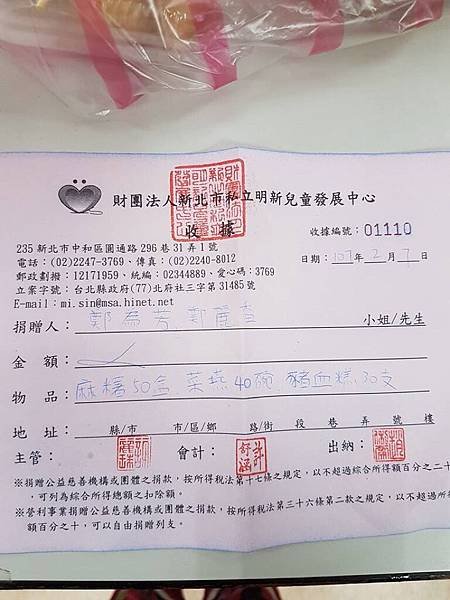 財團法人新北市私立明新兒童發展中心
收據
收據編號：01110
235 新北市中和區圓通路 296 巷 31 弄 1 號
電話：(02)2247-3769、傳真：(02)2240-8012
日期：107年2月7日
郵政劃撥：12171959、統編：02344889、愛心碼：3769
立案字號：台北縣政府(77)北府社三字第 31485 號
E-mail：mi.sin@msa.hinet.net
捐贈人：鄭 芳 鄭麗 小姐/先生
金額：
物品：麻糬50盒 菜燕40碗 豬血糕30支
地址： 縣/市 市/區/鄉 路/街 段 巷 弄 號 樓
主管： 會計： 出納：
※捐贈公益慈善機構或團體之捐款，按所得稅法第十七條之規定，以不超過綜合所得額百分之二十
，可列為綜合所得總額之扣除額。
※營利事業捐贈公益慈善機構或團體之捐款，按所得稅法第三十六條第二款之規定，以不超過所
額百分之十，可以自由捐贈列支。